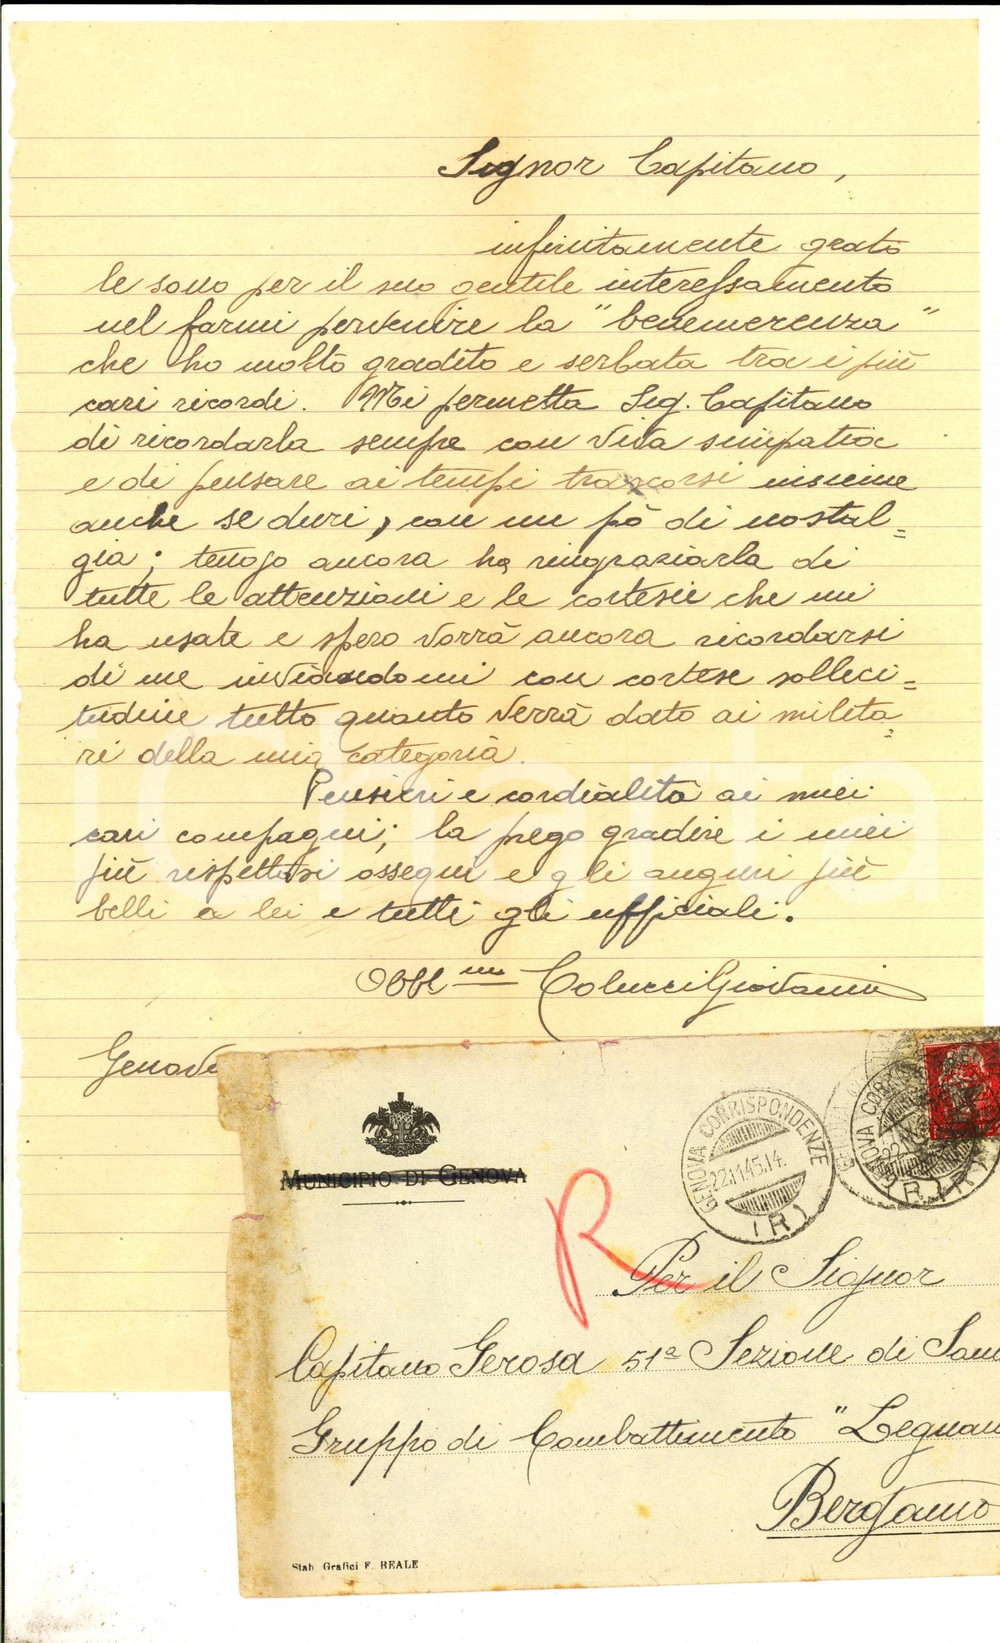 Signor Capitano,
infinitamente grato
le sono per il suo gentile interessamento
nel farmi pervenire la "benemerenza"
che ho molto gradito e serbata tra i più
cari ricordi. Mi permetta Sig. Capitano
di ricordarla sempre con viva simpatia
e di pensare ai tempi trascorsi insieme
anche se duri, con un pò di nostal=
gia; tengo ancora ha ringraziarla di
tutte le attenzioni e le cortesie che mi
ha usate e spero vorrà ancora ricordarsi
di me inviandomi con cortese solleci=
tudine tutto quanto verrà dato ai milita=
ri della mia categoria.
Pensieri e cordialità ai miei
cari compagni; la prego gradire i miei
più rispettosi ossequi e gli auguri più
belli a lei e tutti gli ufficiali.
Obbl.mo Colucci Giovanni
Genova
MUNICIPIO DI GENOVA
GENOVA CORRISPONDENZE
22.11.45.14
(R)
R
Per il Signor
Capitano Gerosa 51ª Sezione di San
Gruppo di Combattimento "Legnan
Bergamo
Stab. Grafici F. REALE